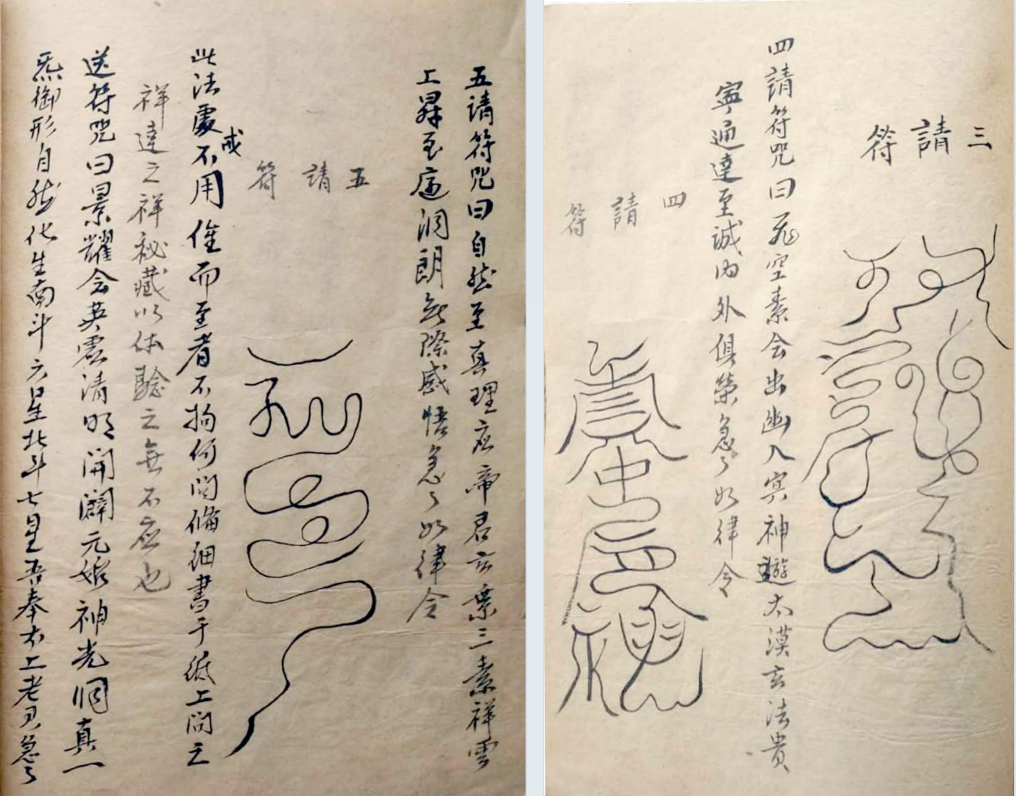 三請符
四請符咒曰飛空素会出幽入冥神遊太漠玄法貴
寧通達至誠內外俱榮急々如律令
四請符
五請符咒曰自然至真理应帝君玄業三素祥雲
上昇至庭洞朗無際感悟急々如律令
五請符
此法處不用隹而至者不拘何问俻細書于紙上问之
成
祥達之祥秘藏以体驗之無不应也
送符咒曰景耀会英雲清明開闢元始神光洞真一
炁御形自然化生南斗六星北斗七星吾奉太上老君急々